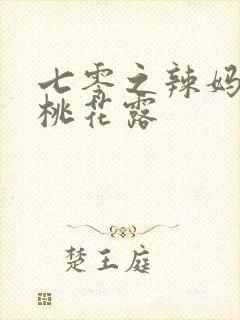 七零之辣妈
桃花露
楚王庭